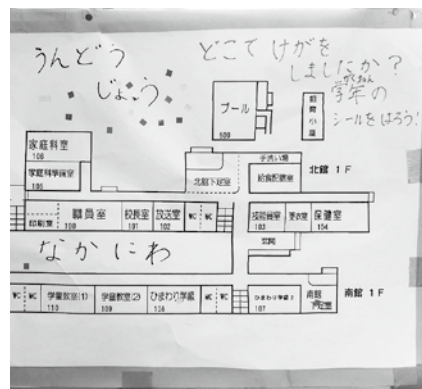 うんどう
じょう
どこで けがを
しましたか?
学年の
シールをはろう!
プール
509
家庭科室
106
家庭科準備室
105
手洗い場
北館下足室
給食配膳室
北館 1F
印刷室
職員室
100
校長室
101
放送室
102
WC
WC
103
更衣室
保健室
104
玄関
なかにわ
WC
WC
学童教室(1)
110
学童教室(2)
109
ひまわり学級
108
WC
WC
ひまわり学級2
107
南館
下足室
南館 1F